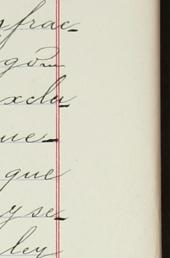 nfrac-
go
xclu-
ue-
que
y se-
ley